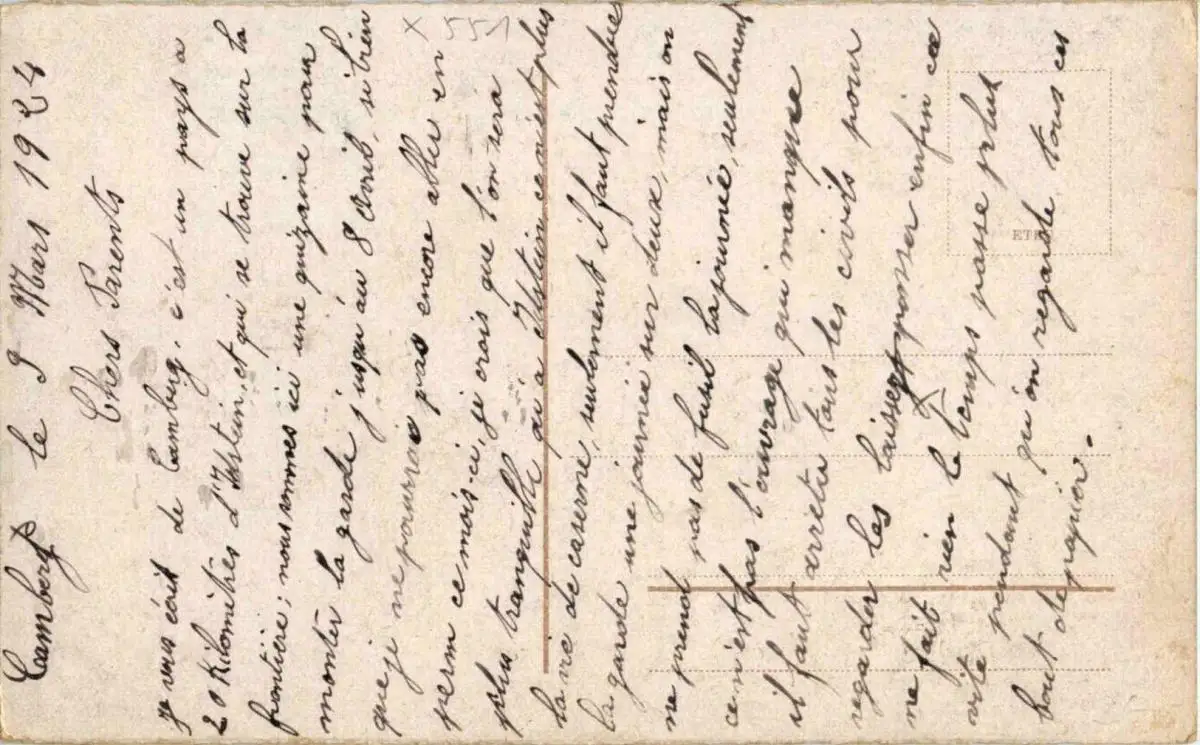 Camberg le 9 Mars 1924
Chers Parents
je vous écrit de Camberg, c'est un pays a
20 Kilomètres d'Idstein, et qui se trouve sur la
frontière; nous sommes ici une quizaine pour
monter la garde jusqu'áu 8 Avril, si bien
que je ne pourrais pas encore aller en
perm ce mois-ci, je crois que l'on sera
plus tranquille qu'a Idstein ce n'est plus
la vie de caserne, seulement il faut prendre
la garde une journée sur deux, mais on
ne prend pas de fusil la journée, seulement
ce n'est pas l'ouvrage qui manque
il faut arrêter tous les civils pour
regarder les laisser passer enfin ce
ne fait rien le temps passe plus
vite pendant qu'on regarde tous ces
bout de papier.
X 551